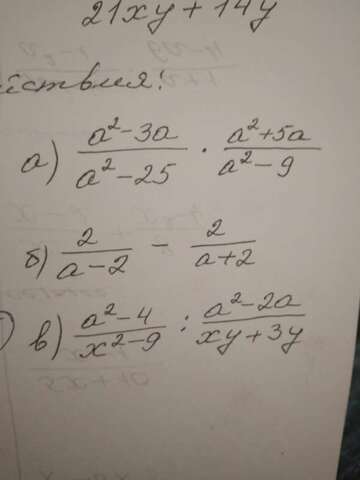 21xy + 14y
йствия:
а) (a²-3a)/(a²-25) · (a²+5a)/(a²-9)
б) 2/(a-2) - 2/(a+2)
в) (a²-4)/(x²-9) : (a²-2a)/(xy+3y)